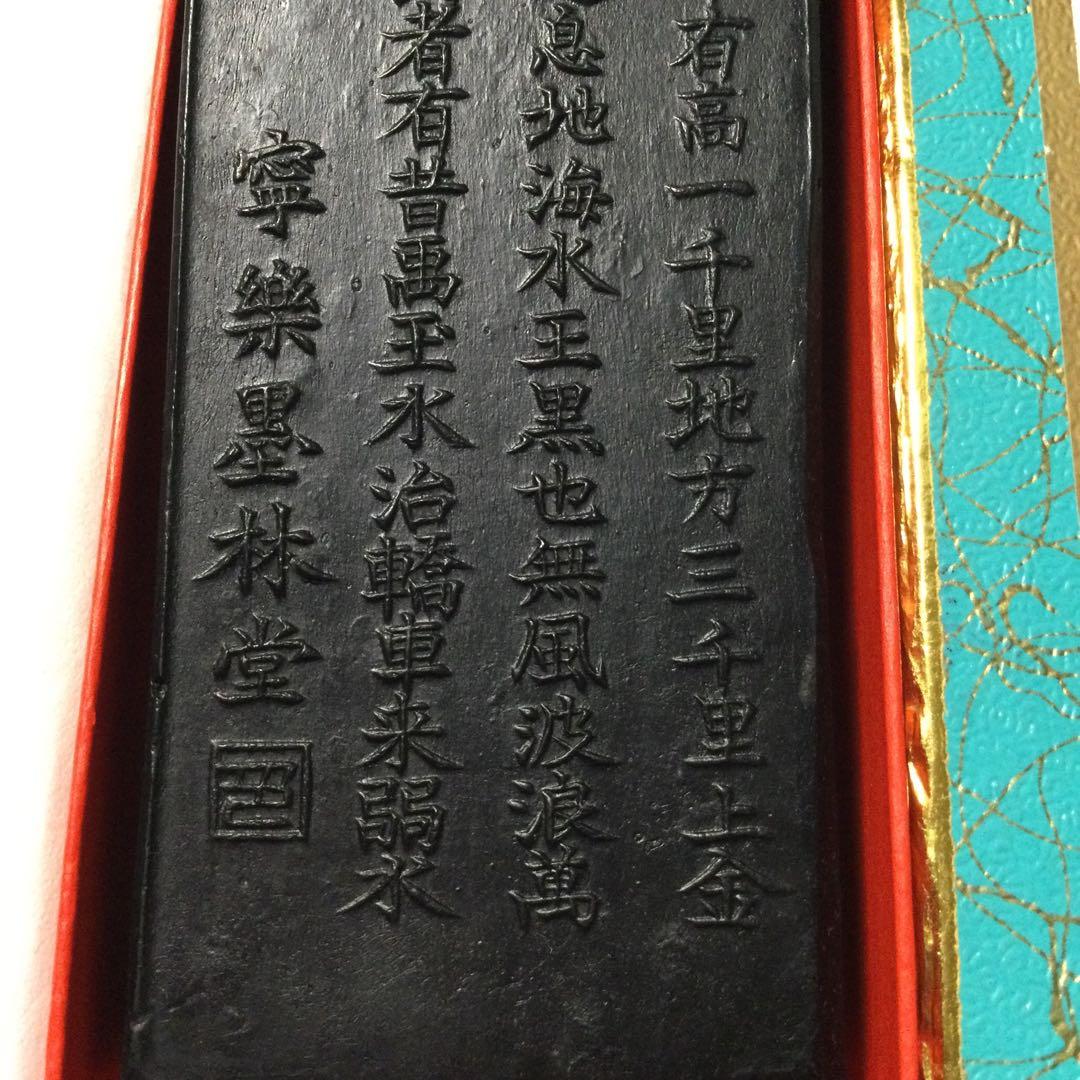 有高一千里地方三千里上金
息地海水王黒也無風波浪萬
者有昔禹王水治轎車来弱水
寧樂墨林堂